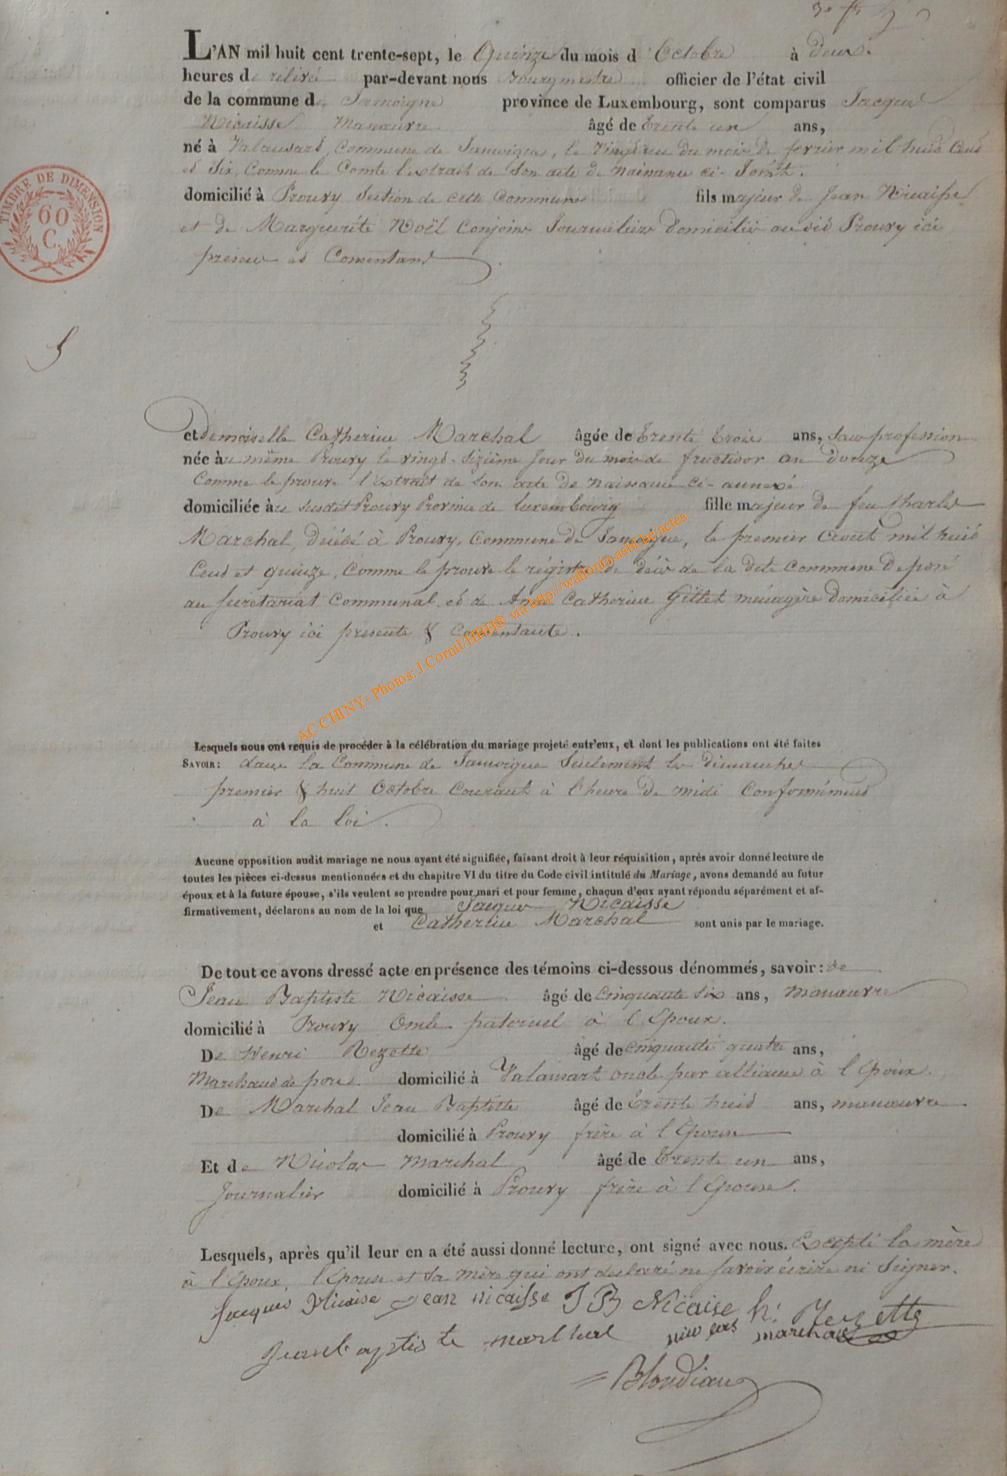 L'AN mil huit cent trente-sept, le Quinze du mois d'Octobre à deux
heures de relevé par-devant nous Bourgmestre officier de l'état civil
de la commune de Jamoigne province de Luxembourg, sont comparus Jacques
Nicaisse Manœuvre âgé de trente un ans,
né à Valansart, Commune de Jamoigne, le du mois de fevrier mil huit Cent
et Six, Comme le Comte l'extrait de Son acte de naissance ci-Joint.
domicilié à Prouvy Section de cette Commune fils majeur de Jean Nicaisse
et de Marguerite Noël Conjoins Journaliers domiciliés au dit Prouvy ici
présens et Consentans
et demoiselle Catherine Marchal âgée de trente trois ans, Sans profession
née au même Prouvy le vingt-sixième Jour du mois de fructidor an douze
Comme le prouve l'extrait de Son acte de naissance ci-annexé
domiciliée au susdit Prouvy Province de Luxembourg fille majeur de feu Charles
Marchal, décédé à Prouvy, Commune de Jamoigne, le premier aout mil huit
Cent et quinze, Comme le prouve le régistre de décès de la dite Commune déposé
au Secrétariat Communal, et de Anne Catherine Gillet ménagère domiciliée à
Prouvy ici presente & Consentante.
AC CHINY- Photos: J.Cornil via http://wallonia-asbl.be/actes
Lesquels nous ont requis de procéder à la célébration du mariage projeté entr'eux, et dont les publications ont été faites
SAVOIR: dans la Commune de Jamoigne Seulement les dimanches
premier & huit Octobre Courant à l'heure de midi Conformément
à la loi.
Aucune opposition audit mariage ne nous ayant été signifiée, faisant droit à leur réquisition, après avoir donné lecture de
toutes les pièces ci-dessus mentionnées et du chapitre VI du titre du Code civil intitulé du Mariage, avons demandé au futur
époux et à la future épouse, s'ils veulent se prendre pour mari et pour femme, chaçun d'eux ayant répondu séparément et af-
firmativement, déclarons au nom de la loi que Jacques Nicaisse
et Catherine Marchal sont unis par le mariage.
De tout ce avons dressé acte en présence des témoins ci-dessous dénommés, savoir: de
Jean Baptiste Nicaisse âgé de Cinquante six ans, manœuvre
domicilié à Prouvy Oncle paternel à l'Epoux.
De Henri Rezette âgé de cinquante quatre ans,
Marchand de porcs domicilié à Valansart oncle par alliance à l'Epoux.
De Marchal Jean Baptiste âgé de trente huit ans, manœuvre
domicilié à Prouvy frère à l'Epouse
Et de Nicolas Marchal âgé de trente un ans,
Journalier domicilié à Prouvy frère à l'Epouse.
Lesquels, après qu'il leur en a été aussi donné lecture, ont signé avec nous. Excepté la mère
à l'époux, l'épouse et sa mère qui ont déclaré ne savoir écrire ni Signer.
jacques Nicaise jean nicaisse J B Nicaise h: Rezette
jeanbaptiste marchal nicolas marchal
Blondiaux
TIMBRE DE DIMENSION
60
C.